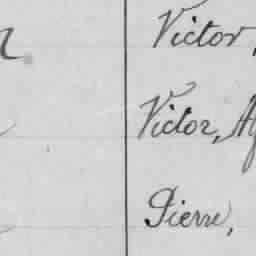 Victor,
Victor, Al
Pierre,